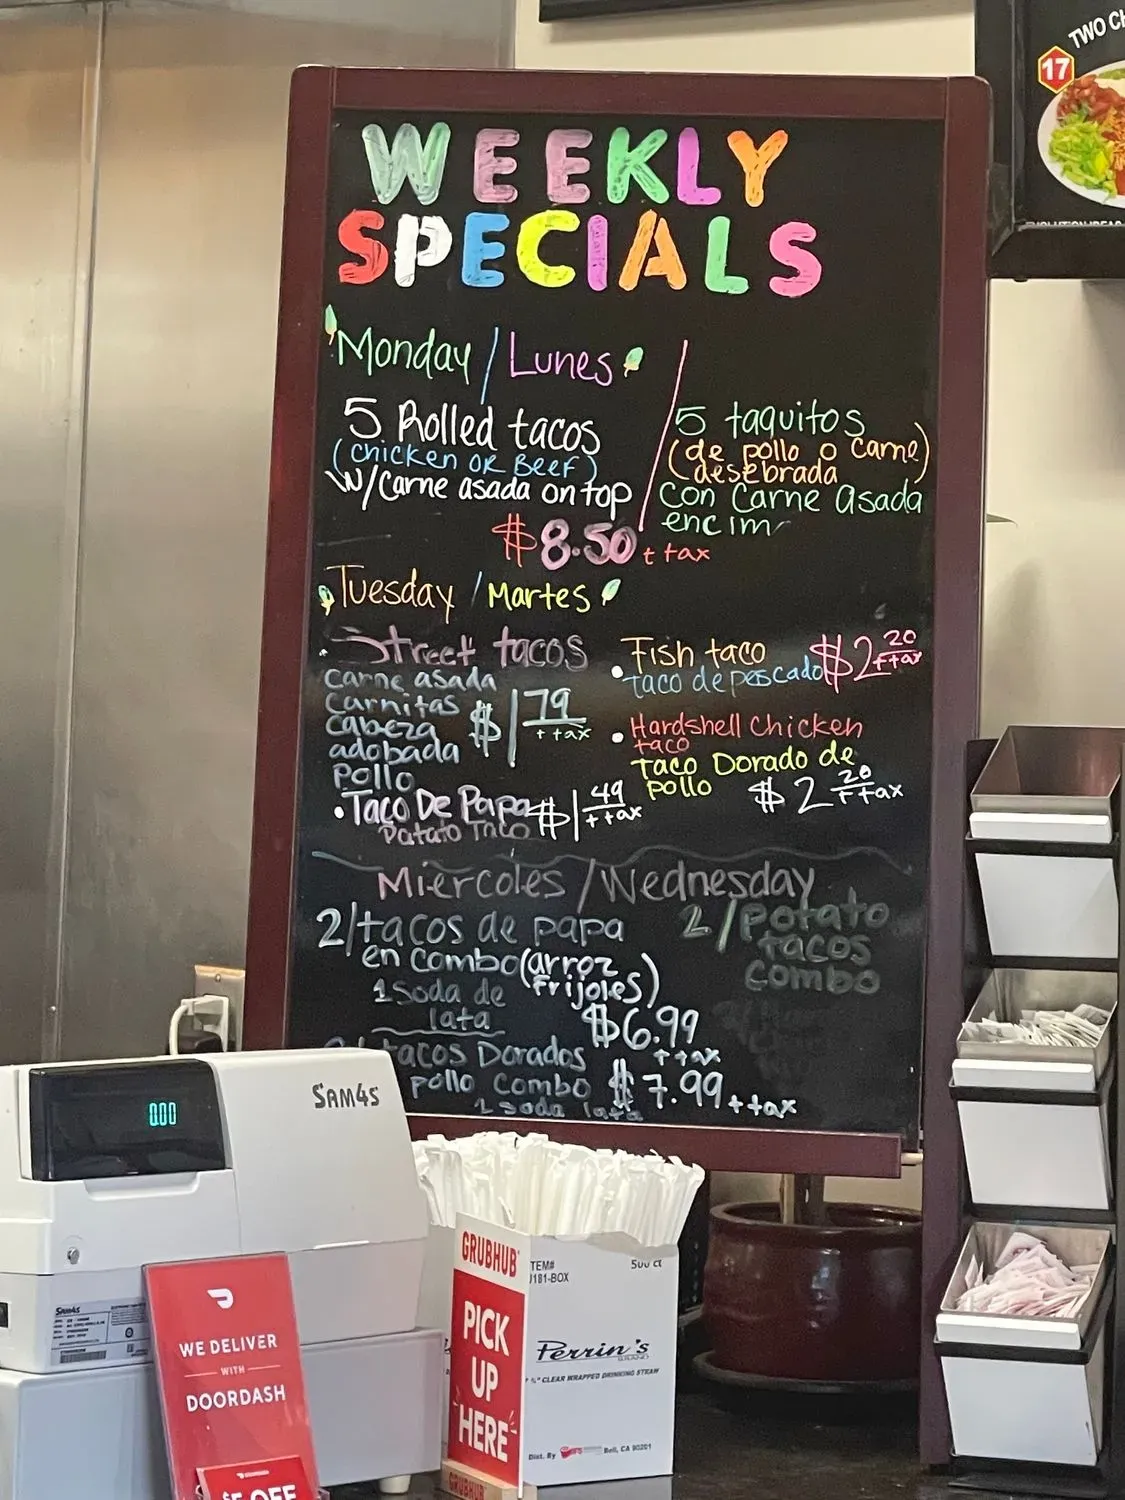 TWO
17
WEEKLY
SPECIALS
Monday / Lunes
5 Rolled tacos
(chicken OR Beef)
W/Carne asada on top
5 taquitos
(de pollo o carne)
desebrada
con Carne asada
encim
$8.50 + tax
Tuesday / Martes
Street tacos
carne asada
Carnitas
cabeza
adobada
pollo
$1 79 + tax
• Taco De Papa $1 49 + tax
Patato Taco
• Fish taco $2 20 + tax
taco de pescado
• Hardshell Chicken
taco
taco Dorado de
pollo $2 20 + tax
Miercoles / Wednesday
2/tacos de papa
en combo (arroz
frijoles)
1 soda de
lata
$6.99
+ tax
2/potato
tacos
combo
tacos Dorados
pollo combo $7.99 + tax
1 soda lata
0.00
SAM4S
SAM4S
WE DELIVER
WITH
DOORDASH
DOORDASH
$5 OFF
GRUBHUB
PICK
UP
HERE
GRUBHUB
ITEM#
500 ct
J181-BOX
Perrin's
BRAND
" CLEAR WRAPPED DRINKING STRAW
Dist. By
Bell, CA 90201